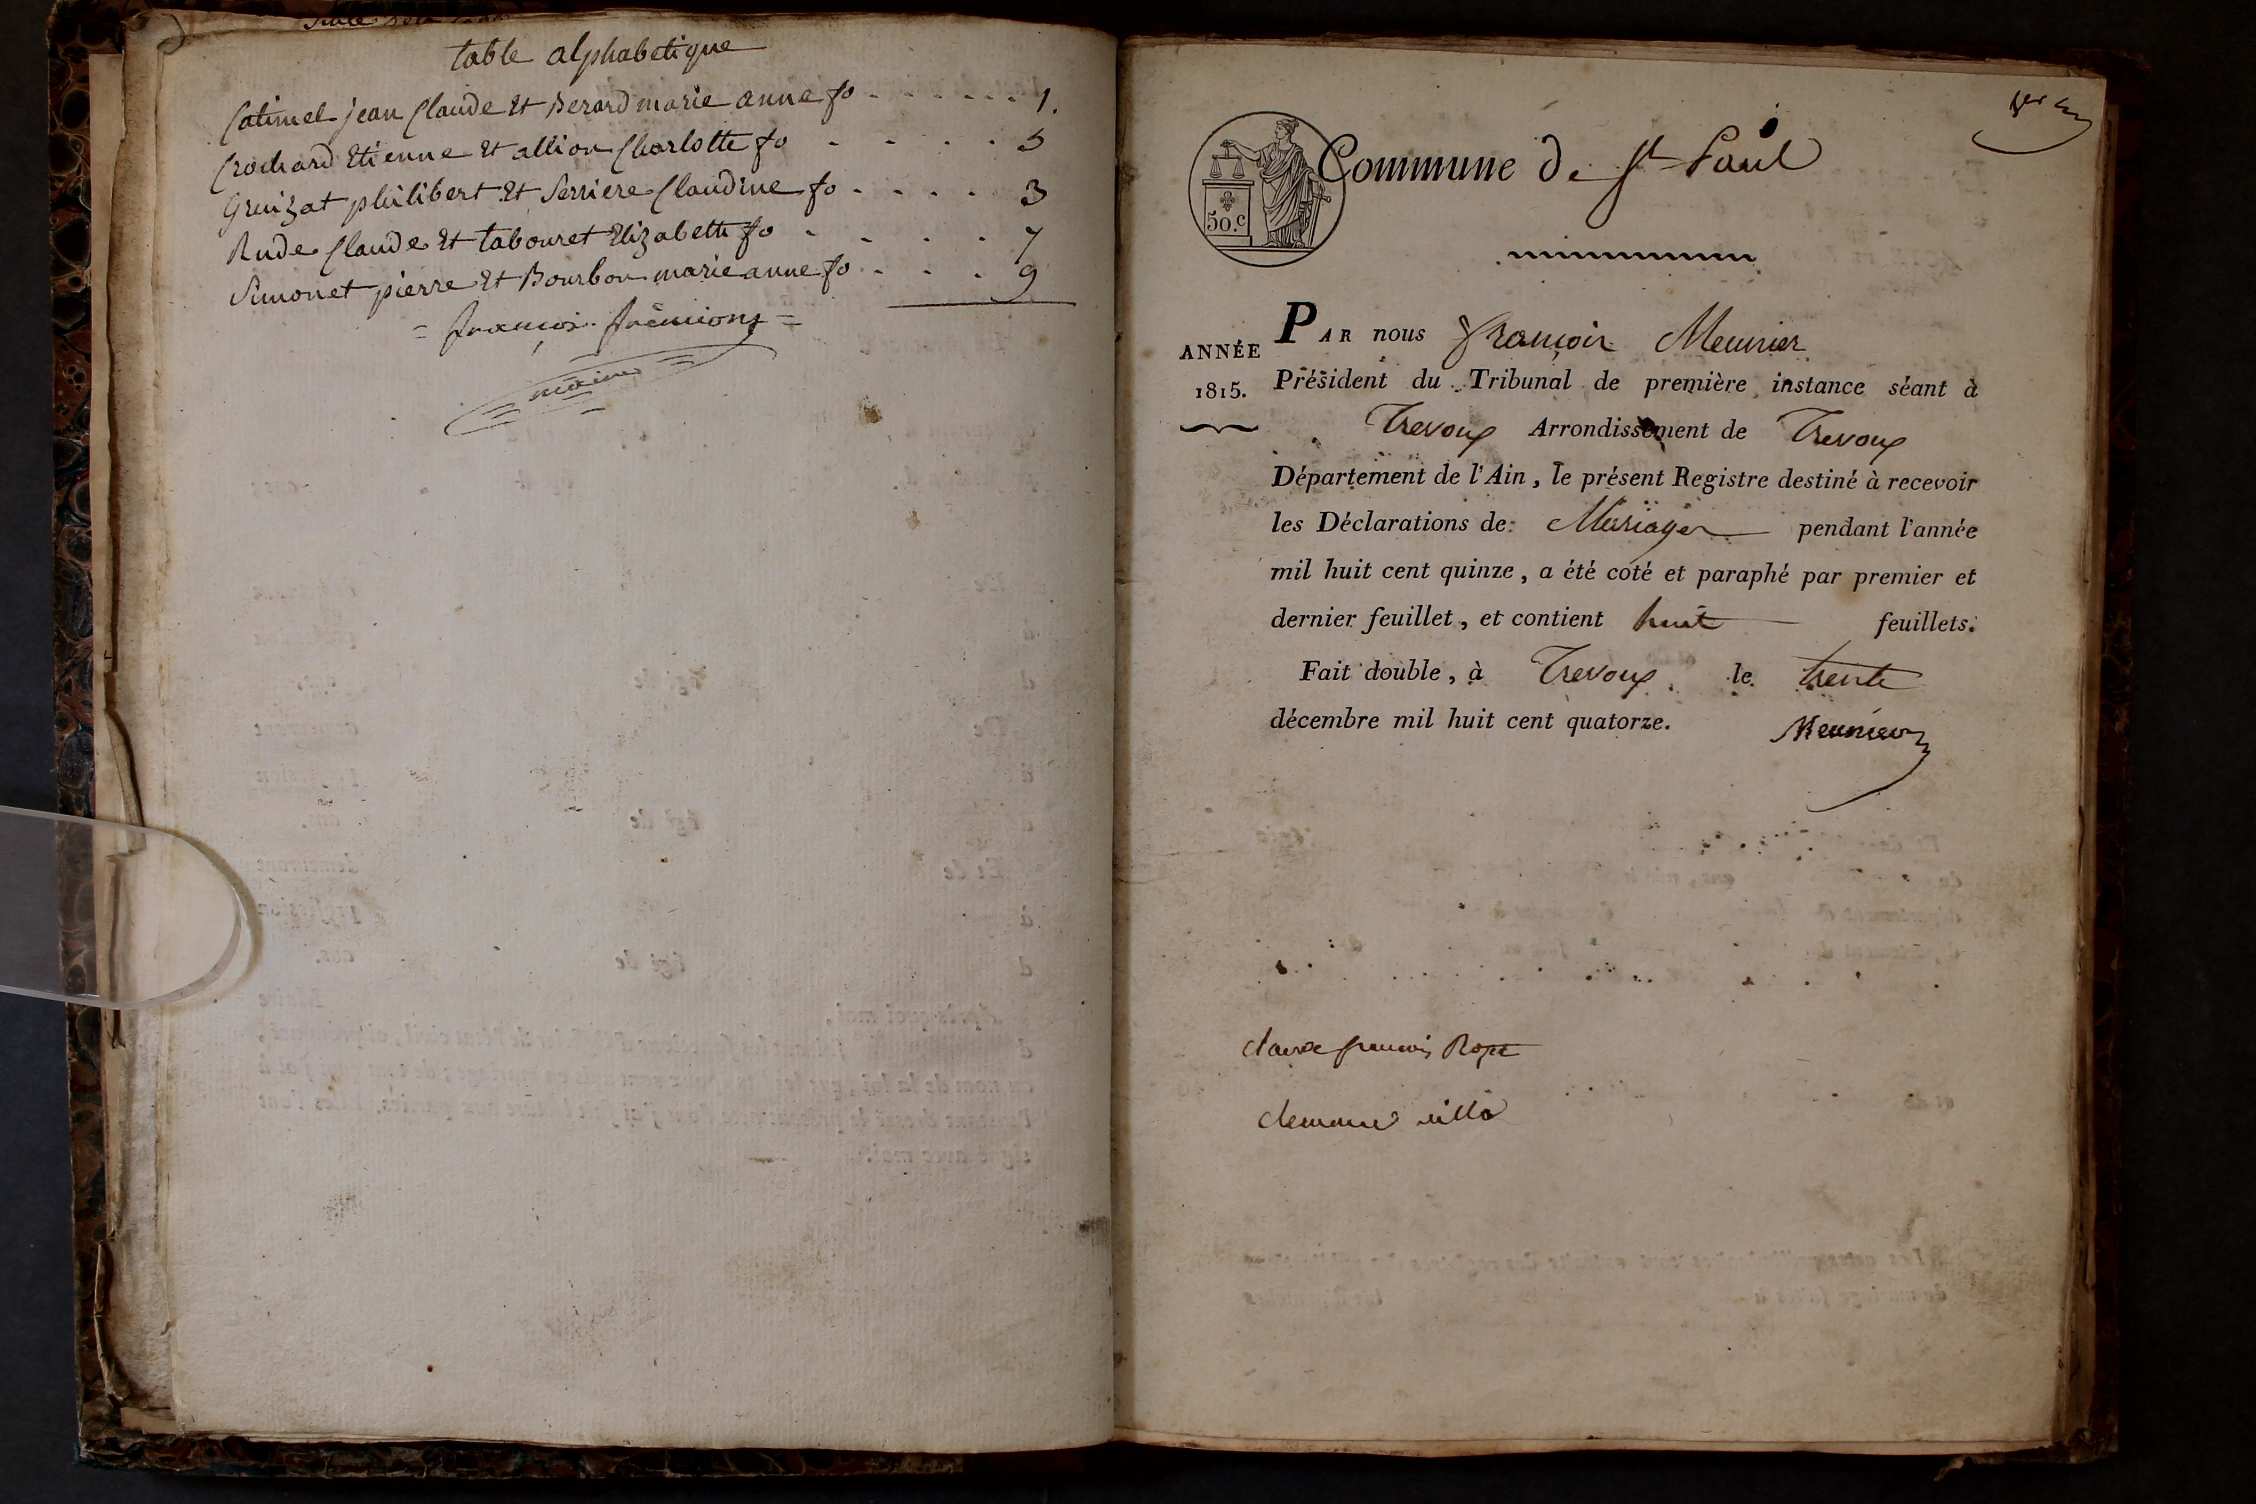 table alphabetique
Catimel jean Claude et Berard marie anne fo - - - - - - 1.
Crochard Etienne et allion Charlotte fo - - - - 5
Gruizat philibert et Serriere Claudine fo - - - - 3
Rude Claude et tabouret Elizabeth fo - - - - 7
Simonet pierre et Bourbon marie anne fo - - - 9
= françois frémion =
maire
1er
50.c
Commune de St Paul
ANNÉE
1815.
PAR nous françois Meunier
Président du Tribunal de première instance séant à
Trevoux Arrondissement de Trevoux
Département de l'Ain, le présent Registre destiné à recevoir
les Déclarations de Mariages pendant l'année
mil huit cent quinze, a été coté et paraphé par premier et
dernier feuillet, et contient huit feuillets.
Fait double, à Trevoux le trente
décembre mil huit cent quatorze.
Meunier
claude francois